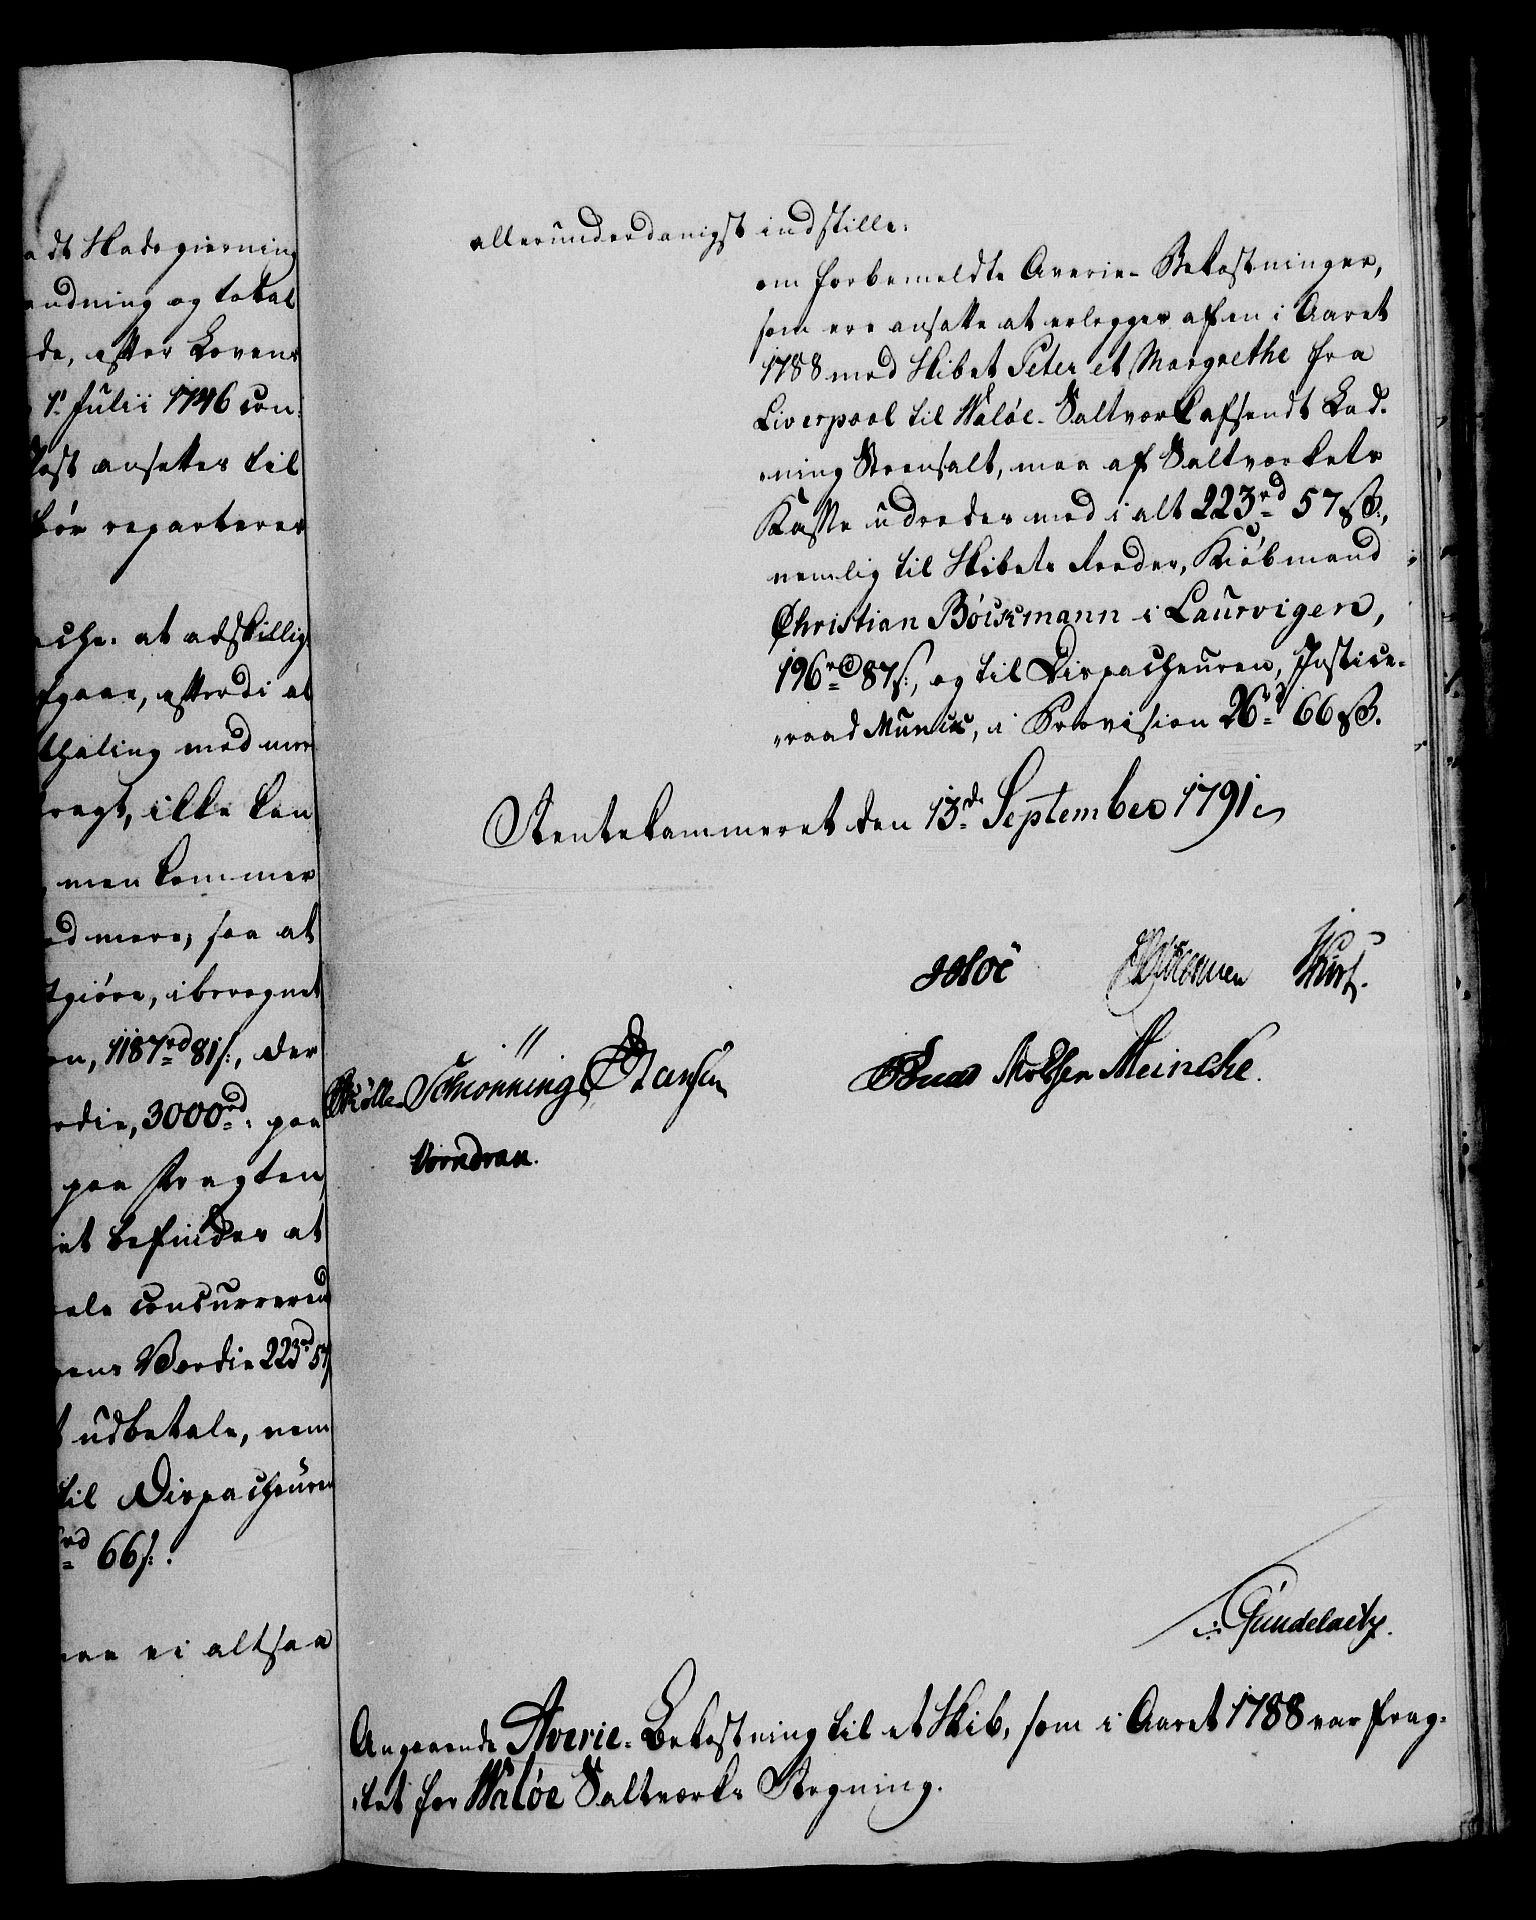 adt Skadegierning
endning og total
de, efter Lovens
1ste Julii 1746 con-
Kost ansættes til
bør reparteres
ache: at adskillig
fgaae, efterdi at
thaling med mere
ragt, ikke kan
men kommer
ed mere, saa at
tgiøre, iberegnet
on, 1187rd 81s:, der
ærdie, 3000rd: paa
paa Fragten
et befindes at
ale concurrerend
gens Værdie 223rd 57
t udbetale, nem
til Dispacheuren
rd 66s:.
aae vi altsaa
allerunderdanigst indstille:
om forbemeldte Averie-Bekostninger,
som ere ansatte at erlegges af en i Aaret
1788 med Skibet Peter et Margrethe fra
Liverpool til Waløe-Saltværk afsendt Lad-
ning Steensalt, maa af Saltværkets
Kasse udredes med i alt 223rd 57 s:,
nemlig til Skibets Reeder, Kiøbmand
Christian Böckmann i Laurvigen,
196rd 87s:, og til Dispacheuren, Justice-
raad Munck, i Provision 26rd 66 s.
Rentekammeret den 13de September 1791
Hoë
Schiønning Hansen Meincke.
Vorndran.
Gundelach.
Angaaende Averie-Bekostning til et Skib, som i Aaret 1788 var frag-
tet for Waløe Saltværks Regning.